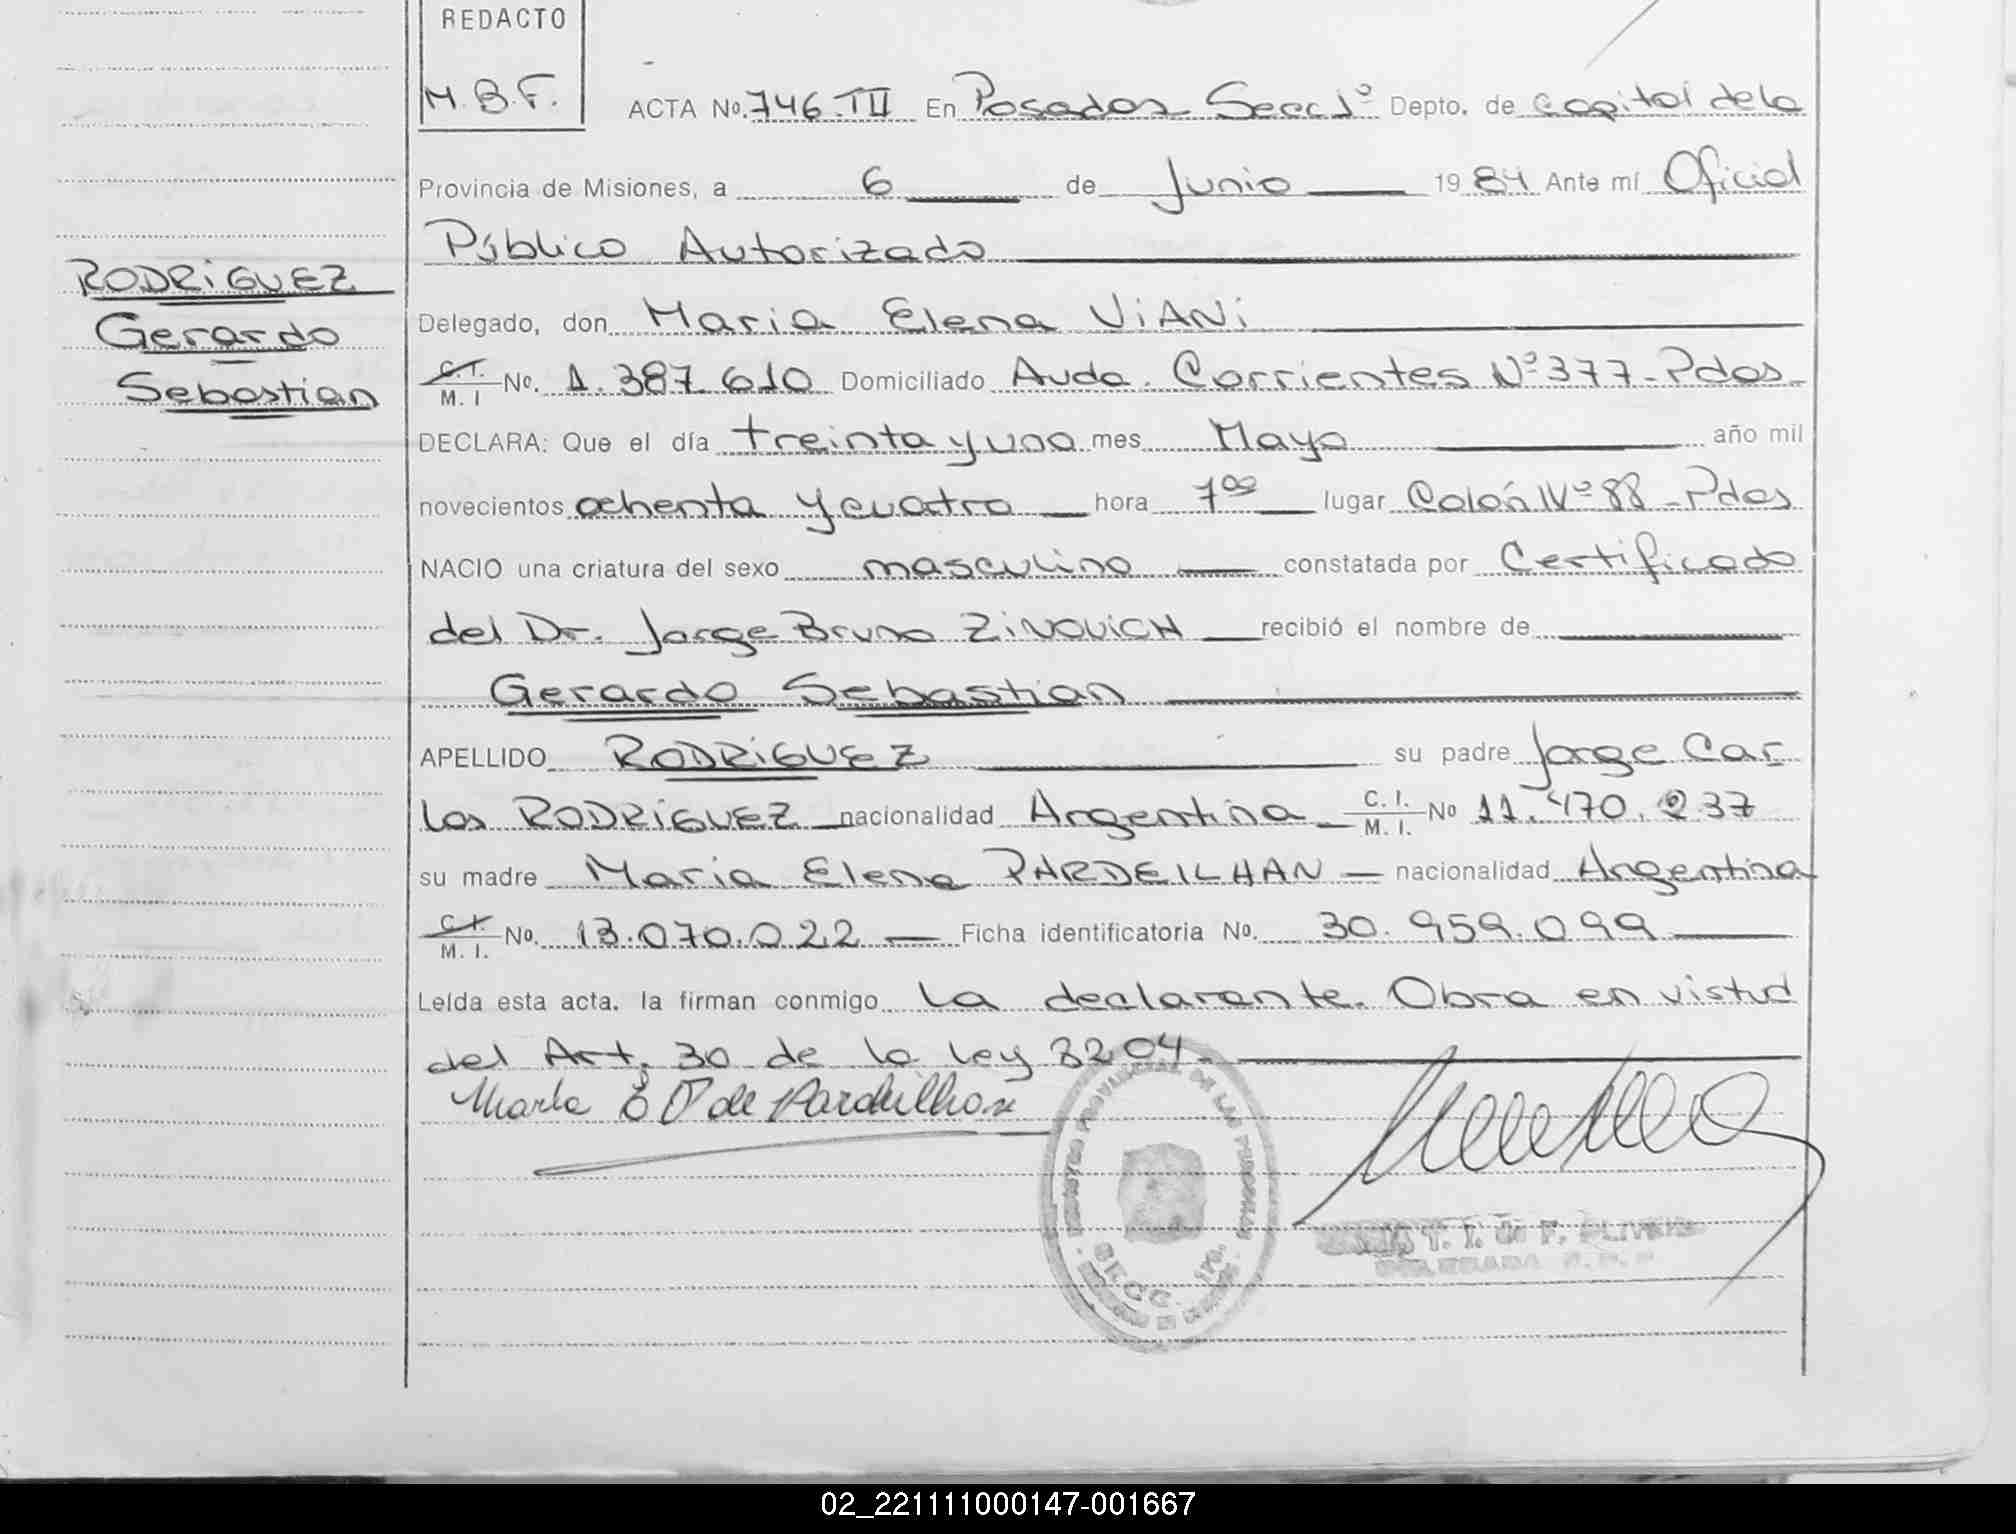 REDACTO
M.B.F.
ACTA No. 746.TII En Posadas Secc 1º Depto. de Capital de la
Provincia de Misiones, a 6 de Junio 1984 Ante mí Oficial
Público Autorizado
RODRIGUEZ
Gerardo
Sebastian
Delegado, don Maria Elena ViANi
C.I. M. I No. 1.387.610 Domiciliado Avda. Corrientes Nº 377-Pdas-
DECLARA: Que el día treinta y uno mes Mayo año mil
novecientos ochenta y cuatro hora 7⁰⁰ lugar Colón Nº 88-Pdas
NACIO una criatura del sexo masculino constatada por Certificado
del Dr. Jorge Bruno ZINOVICH recibió el nombre de
Gerardo Sebastian
APELLIDO RODRIGUEZ su padre Jorge Car
los RODRIGUEZ nacionalidad Argentina C. I. M. I. No 11.470.237
su madre Maria Elena PARDEILHAN - nacionalidad Argentina
C.I. M. I. No. 13.070.022 Ficha identificatoria No. 30.959.099
Leída esta acta. la firman conmigo La declarante. Obra en virtud
del Art. 30 de la ley 3204.
de Pardeilhan
REGISTRO PROVINCIAL DE LAS PERSONAS
SECC. 1ra.
T. I. F.
DELEGADA
02_221111000147-001667